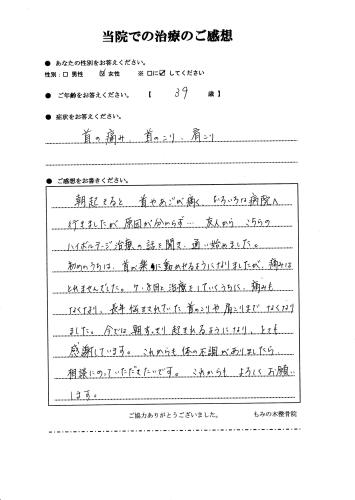 当院での治療のご感想
● あなたの性別をお答えください。
性別:□ 男性 ☑ 女性 ※ □に☑ してください
● ご年齢をお答えください。 【 39 歳 】
● 症状をお答えください。
首の痛み、首のこり、肩こり
● ご感想をお書きください。
朝起きると 首やあごが痛く、いろいろな病院へ
行きましたが原因が分からず… 友人から こちらの
ハイボルテージ治療の話を聞き、通い始めました。
初めのうちは、首が楽に動かせるようになりましたが、痛みは
とれませんでした。ケ月目と治療をしていくうちに、痛みも
なくなり、長年悩まされていた首のこりや肩こりまでなくなり
ました。今では朝すっきり起きれるようになり、とても
感謝しています。これからも体の不調がありましたら、
相談にのっていただきたいです。これからも よろしくお願い
します。
ご協力ありがとうございました。 もみの木整骨院